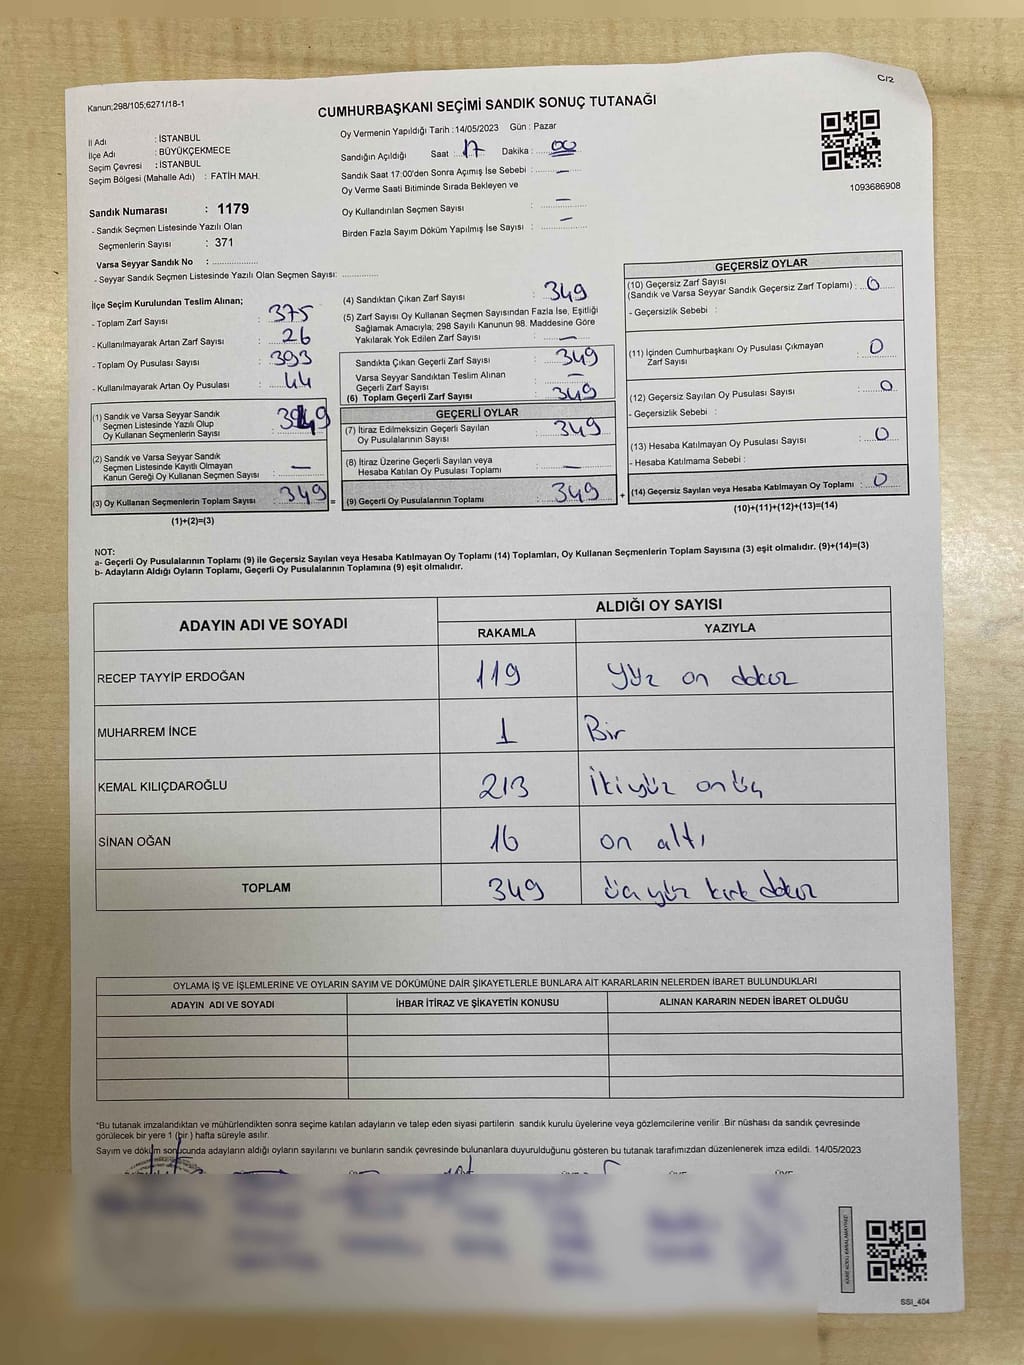 C/2
Kanun;298/105;6271/18-1
CUMHURBAŞKANI SEÇİMİ SANDIK SONUÇ TUTANAĞI
İl Adı : İSTANBUL
İlçe Adı : BÜYÜKÇEKMECE
Seçim Çevresi : İSTANBUL
Seçim Bölgesi (Mahalle Adı) : FATİH MAH.
Oy Vermenin Yapıldığı Tarih :14/05/2023 Gün : Pazar
Sandığın Açıldığı Saat : 17 Dakika : 00
Sandık Saat 17:00'den Sonra Açımış İse Sebebi : —
Oy Verme Saati Bitiminde Sırada Bekleyen ve
Oy Kullandırılan Seçmen Sayısı : —
Birden Fazla Sayım Döküm Yapılmış İse Sayısı : —
1093686908
Sandık Numarası : 1179
- Sandık Seçmen Listesinde Yazılı Olan
Seçmenlerin Sayısı : 371
Varsa Seyyar Sandık No : ...............
- Seyyar Sandık Seçmen Listesinde Yazılı Olan Seçmen Sayısı: ............
İlçe Seçim Kurulundan Teslim Alınan;
- Toplam Zarf Sayısı : 375
- Kullanılmayarak Artan Zarf Sayısı : 26
- Toplam Oy Pusulası Sayısı : 393
- Kullanılmayarak Artan Oy Pusulası : 44
(1) Sandık ve Varsa Seyyar Sandık
Seçmen Listesinde Yazılı Olup
Oy Kullanan Seçmenlerin Sayısı :
(2) Sandık ve Varsa Seyyar Sandık
Seçmen Listesinde Kayıtlı Olmayan
Kanun Gereği Oy Kullanan Seçmen Sayısı : —
(3) Oy Kullanan Seçmenlerin Toplam Sayısı : 349
(1)+(2)=(3)
(4) Sandıktan Çıkan Zarf Sayısı : 349
(5) Zarf Sayısı Oy Kullanan Seçmen Sayısından Fazla İse, Eşitliği
Sağlamak Amacıyla; 298 Sayılı Kanunun 98. Maddesine Göre
Yakılarak Yok Edilen Zarf Sayısı : —
Sandıkta Çıkan Geçerli Zarf Sayısı : 349
Varsa Seyyar Sandıktan Teslim Alınan
Geçerli Zarf Sayısı : —
(6) Toplam Geçerli Zarf Sayısı : 349
GEÇERLİ OYLAR
(7) İtiraz Edilmeksizin Geçerli Sayılan
Oy Pusulalarının Sayısı : 349
(8) İtiraz Üzerine Geçerli Sayılan veya
Hesaba Katılan Oy Pusulası Toplamı : —
= (9) Geçerli Oy Pusulalarının Toplamı : 349
GEÇERSİZ OYLAR
(10) Geçersiz Zarf Sayısı
(Sandık ve Varsa Seyyar Sandık Geçersiz Zarf Toplamı) : 0
- Geçersizlik Sebebi :
(11) İçinden Cumhurbaşkanı Oy Pusulası Çıkmayan
Zarf Sayısı : 0
(12) Geçersiz Sayılan Oy Pusulası Sayısı : 0
- Geçersizlik Sebebi :
(13) Hesaba Katılmayan Oy Pusulası Sayısı : 0
- Hesaba Katılmama Sebebi :
+ (14) Geçersiz Sayılan veya Hesaba Katılmayan Oy Toplamı : 0
(10)+(11)+(12)+(13)=(14)
NOT:
a- Geçerli Oy Pusulalarının Toplamı (9) ile Geçersiz Sayılan veya Hesaba Katılmayan Oy Toplamı (14) Toplamları, Oy Kullanan Seçmenlerin Toplam Sayısına (3) eşit olmalıdır. (9)+(14)=(3)
b- Adayların Aldığı Oyların Toplamı, Geçerli Oy Pusulalarının Toplamına (9) eşit olmalıdır.
ADAYIN ADI VE SOYADI ALDIĞI OY SAYISI
RAKAMLA YAZIYLA
RECEP TAYYİP ERDOĞAN 119 yüz on dokuz
MUHARREM İNCE 1 Bir
KEMAL KILIÇDAROĞLU 213 İkiyüz onüç
SİNAN OĞAN 16 on altı
TOPLAM 349 üçyüz kırk dokuz
OYLAMA İŞ VE İŞLEMLERİNE VE OYLARIN SAYIM VE DÖKÜMÜNE DAİR ŞİKAYETLERLE BUNLARA AİT KARARLARIN NELERDEN İBARET BULUNDUKLARI
ADAYIN ADI VE SOYADI İHBAR İTİRAZ VE ŞİKAYETİN KONUSU ALINAN KARARIN NEDEN İBARET OLDUĞU
*Bu tutanak imzalandıktan ve mühürlendikten sonra seçime katılan adayların ve talep eden siyasi partilerin sandık kurulu üyelerine veya gözlemcilerine verilir. Bir nüshası da sandık çevresinde
görülecek bir yere 1 (bir ) hafta süreyle asılır.
Sayım ve döküm sonucunda adayların aldığı oyların sayılarını ve bunların sandık çevresinde bulunanlara duyurulduğunu gösteren bu tutanak tarafımızdan düzenlenerek imza edildi. 14/05/2023
SSI_404